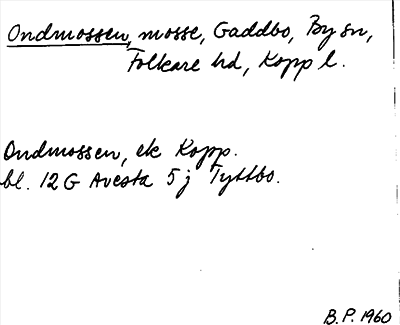 Ondmossen, mosse, Gaddbo, By sn,
Folkare hd, Kopp l.
Ondmossen, ek Kopp.
bl. 12 G Avesta 5 j Tyttbo.
B.P. 1960